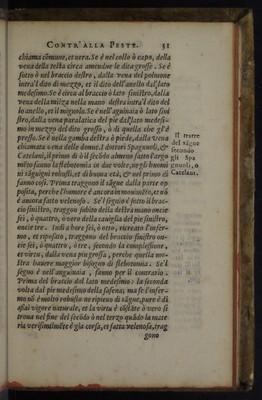 CONTR'ALLA PESTE. 31
chiama cōmune, et vera. Se è nel collo ò capo, della
vena della testa circa amendue le dita grosse. Se è
sotto ò nel braccio destro, dalla vena del polmone
intra'l dito di mezzo, et il dito dell'anello dal lato
medesimo. Se è circa al braccio ò lato sinistro, dalla
vena della milza nella mano destra intra'l dito del
lo anello, et il mignolo. Se è nell'anguinaia ò lato sini
stro, dalla vena paralatica del piè dal lato medesi-
mo in mezzo del dito grosso, ò di quella che gl'è
presso. Se è nella gamba destra ò piede, dalla vena
chiamata vena delle donne. I dottori Spagnuoli, &
Catelani, il primo dì ò il secōdo almeno fatto l'argo
mēto fanno la flebotomia in due volte, ne gli huomi
ni sāguigni robusti, et di buona età, & nel primo dì
fanno così. Prima traggono il sāgue dalla parte op
posita, perche l'humore è ancora in mouimēto, et nō
è ancora fatto velenoso. Se'l segno è sotto il brac-
cio sinistro, traggon subito della destra mano oncie
sei, ò quattro, ò vero della cauiglia del piè sinistro,
oncie tre. Indi a hore sei, ò otto, ricreato l'infer-
mo, et riposato, traggono del braccio sinistro on-
cie sei, ò quattro, ò tre, secondo la complessione,
et virtu, dalla vena piu grossa, perche quella mo-
stra hauere maggior bisogno di flebotomia. Se'l
segno è nell'anguinaia, fanno per il contrario.
Prima del braccio dal lato medesimo: la seconda
volta dal piè medesimo della safena; ma se l'infer-
mo nō è molto robusto ne ripieno di sāgue, pure è di
assai vigore naturale, et la virtu è cōstāte ò vero si
troua nel fine del secōdo ò nel terzo quādo la mate
ria verisimilmēte è gia corsa, et fatta velenosa, trag
gono
Il trarre
del sāgue
secondo
gli Spa
gnuoli, o
Catelani.